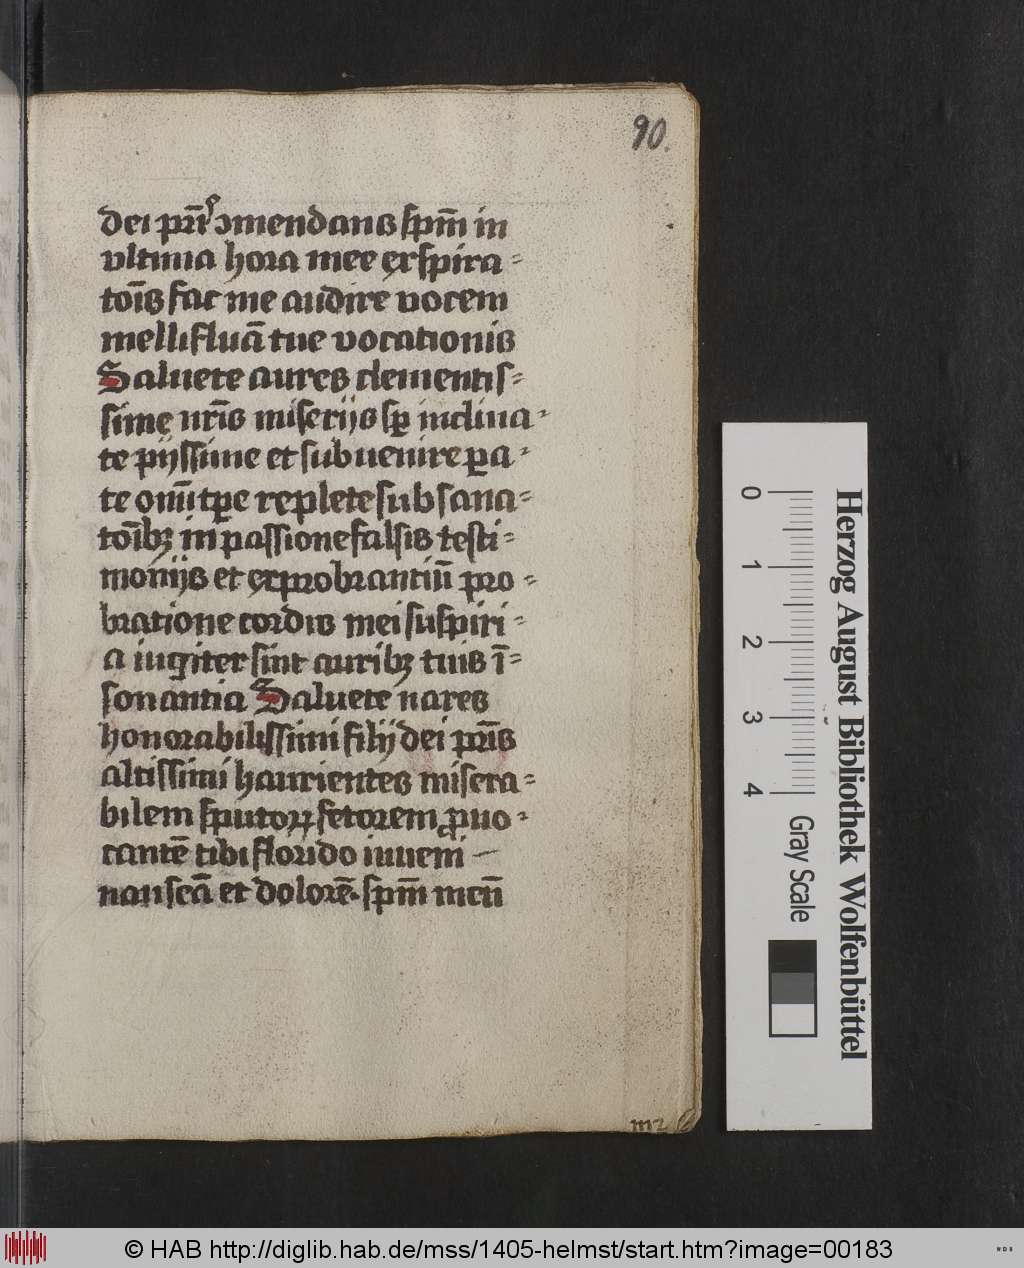 90.
dei pr̄i ꝯmendans sp̄m in
vltima hora mee exspira⸗
toīs fac me audire vocem
mellifluā tue vocationis
Saluete aures clementis⸗
sime nr̄is miserijs sp̱ inclina⸗
te pijssime et subuenire ꝑa⸗
te om̄i tꝑe replete subsana⸗
toībꝫ in passione falsis testi⸗
monijs et exprobrantiū pro⸗
bratione cordis mei suspiri⸗
a iugiter sint auribꝫ tuis ī⸗
sonantia Saluete nares
honorabilissimi filij dei pr̄is
altissimi haurientes misera⸗
bilem sputoꝝ fetorem ꝓuo⸗
cantē tibi florido iuueni —
nauseā et dolorē. sp̄m meū
m2
0 1 2 3 4
Gray Scale
Herzog August Bibliothek Wolfenbüttel
© HAB http://diglib.hab.de/mss/1405-helmst/start.htm?image=00183
WDB